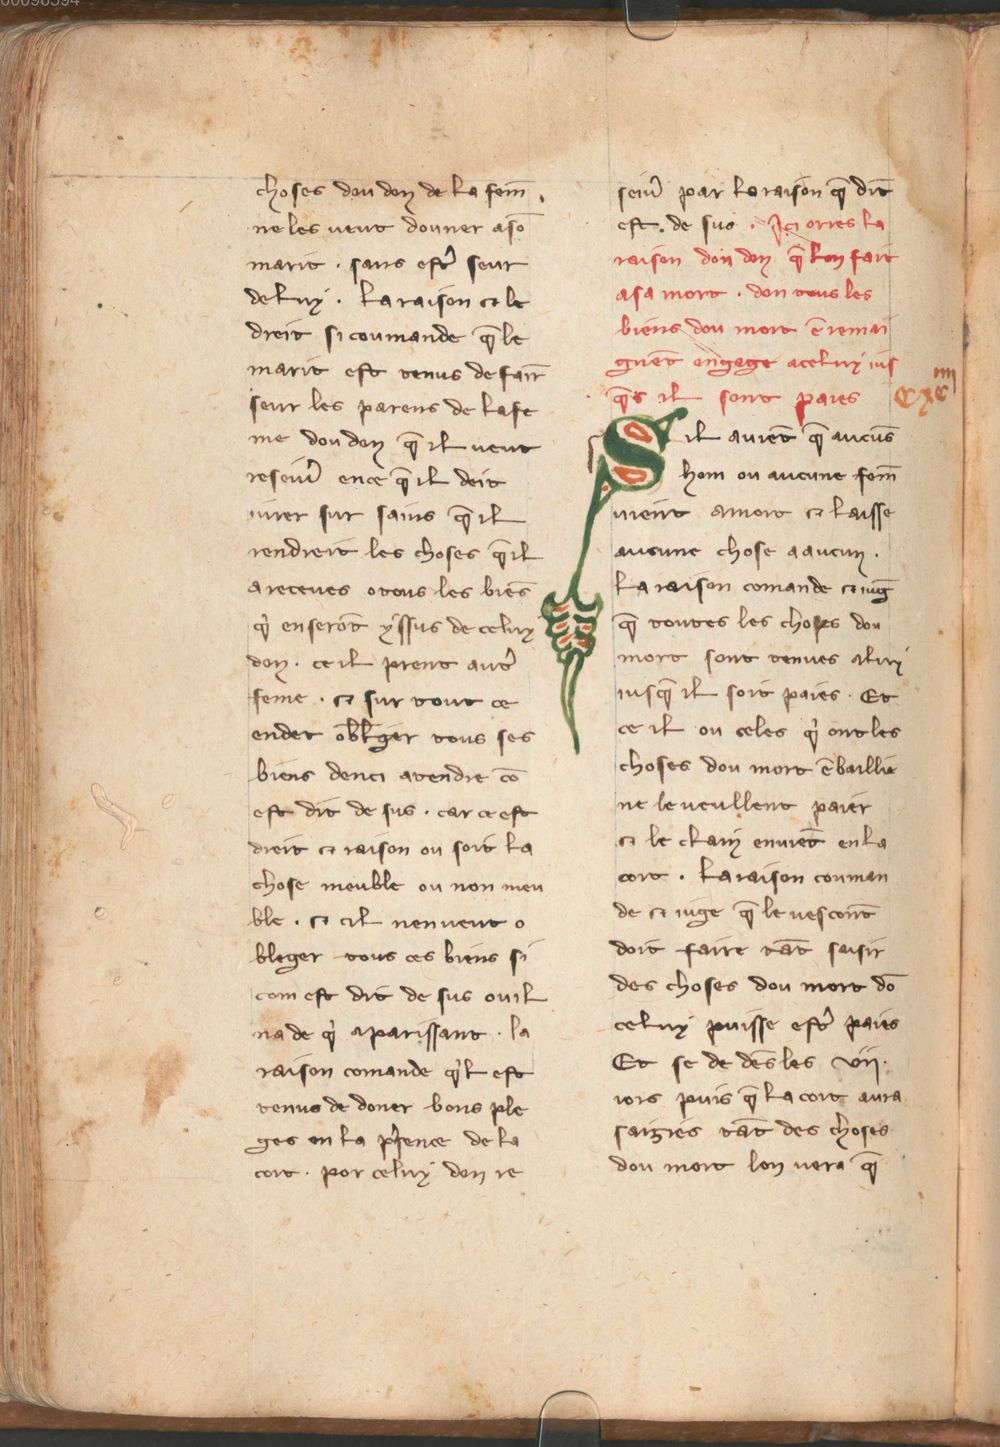 choses dou don de la fem̄
ne les veut donner a sō
marit · sans estr̄ seur
de luy · La raison et le
dreit si coumande q̄ le
marit est tenus de fair̄
seur les parens de la fe
me dou don q̄ il veut
reseiuir̄ en ce q̄ il deit
iurer sur sains q̄ il
rendreit les choses q̄ il
a receues o tous les biēs
q̇ en serōt yssus de celuy
don · ce il prent autr̄
feme · et sur tout ce
en det obliger tous ses
biens denci a rendre cō
est dit de sus · car ce est
dreit et raison ou soit la
chose meuble ou non meu
ble · et cil nen veut o
bleger tous ces biens si
com est dit de sus ou il
na de q̇ aparissant · la
raison comande q̇l est
tenus de doner bons ple
ges en la p̄sence de la
cort · por celuy don re
seiur̄ par la raison q̄ dit
est · de sus · Ici orres la
raison dou don q̄ lon fait
a sa mort · don tous les
biens dou mort ē remai
gnēt en gage a celuy ius
q̄s il sont paies
CXC IIII
S il auiēt q̄ aucūs
hom ou aucune fem̄
vient a mort et laisse
aucune chose a aucun ·
La raison comande et iuḡ
q̄ toutes les choses dou
mort sont tenues a luy
iusq̄ il soit paies · Et
ce il ou celes q̇ ont les
choses dou mort ē baillie
ne le veullent paier
et le clain en viēt en la
cort · La raison couman
de et iuge q̄ le vescont
doit faire tāt saisir
des choses dou mort dō
celuy puisse estr̄ paies
Et se de dēs les vii·
iors puis q̄ la cort aura
saizies tāt des choses
dou mort lon vera q̄